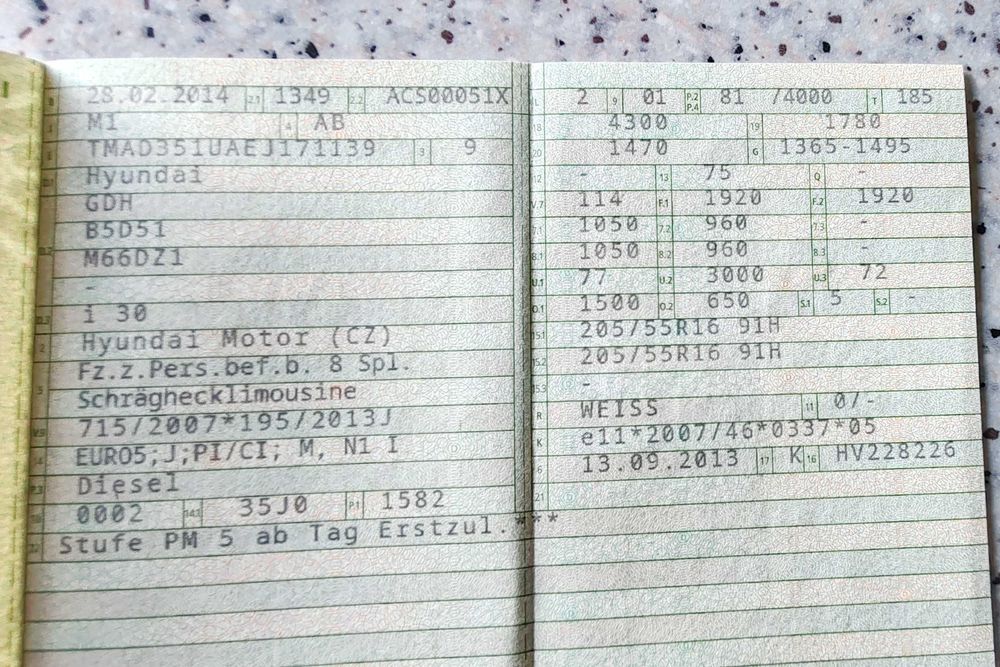 B 28.02.2014 2.1 1349 2.2 ACS00051X
J M1 4 AB
E TMAD351UAEJ171139 3 9
D.1 Hyundai
GDH
B5D51
D.2 M66DZ1
-
D.3 i 30
2 Hyundai Motor (CZ)
Fz.z.Pers.bef.b. 8 Spl.
5 Schräghecklimousine
V.9 715/2007*195/2013J
EURO5;J;PI/CI; M, N1 I
P.3 Diesel
10 0002 14.1 35J0 P.1 1582
22 Stufe PM 5 ab Tag Erstzul.***
L 2 9 01 P.2 P.4 81 /4000 T 185
18 4300 19 1780
20 1470 G 1365-1495
12 - 13 75 Q -
V.7 114 F.1 1920 F.2 1920
7.1 1050 7.2 960 7.3 -
8.1 1050 8.2 960 8.3 -
U.1 77 U.2 3000 U.3 72
O.1 1500 O.2 650 S.1 5 S.2 -
15.1 205/55R16 91H
15.2 205/55R16 91H
15.3 -
R WEISS 11 0/-
K e11*2007/46*0337*05
6 13.09.2013 17 K 16 HV228226
21